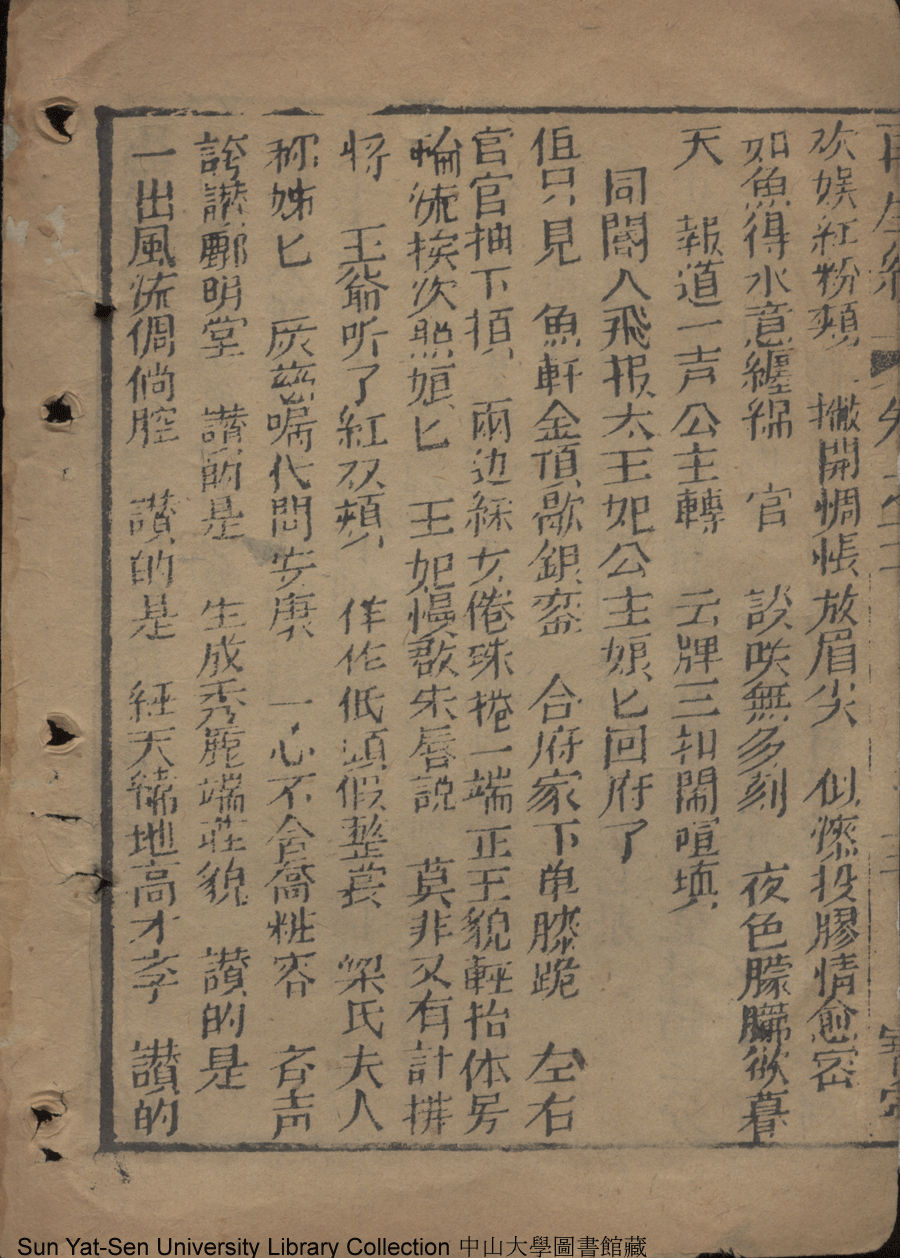 欢娱紅粉頰 撇開惆悵放眉尖 似漆投膠情愈密
如魚得水意纏綿 官 談咲無多刻 夜色朦朧欲暮
天 報道一声公主轉 云牌三扣鬧喧填
同閽人飛报太王妃公主娘匕回府了
但只見 魚軒金頂歇銀鑾 合府家下单膝跪 左右
官官抽下損 兩边綵女倦珠捲一端正王貌輕抬体另
輪流挨次照娘匕 王妃慢啟朱唇説 莫非又有計排
将 王爺听了紅双頰 佯作低頭假整裳 梁氏夫人
称姊匕 灰 嘱代問安康 一心不舍喬粧容 吝声
誇讃酈明堂 讃的是 生成秀麗端莊貌 讃的是
一出風流倜倘腔 讃的是 經天緯地高才孛 讃的
Sun Yat-Sen University Library Collection 中山大學圖書館藏